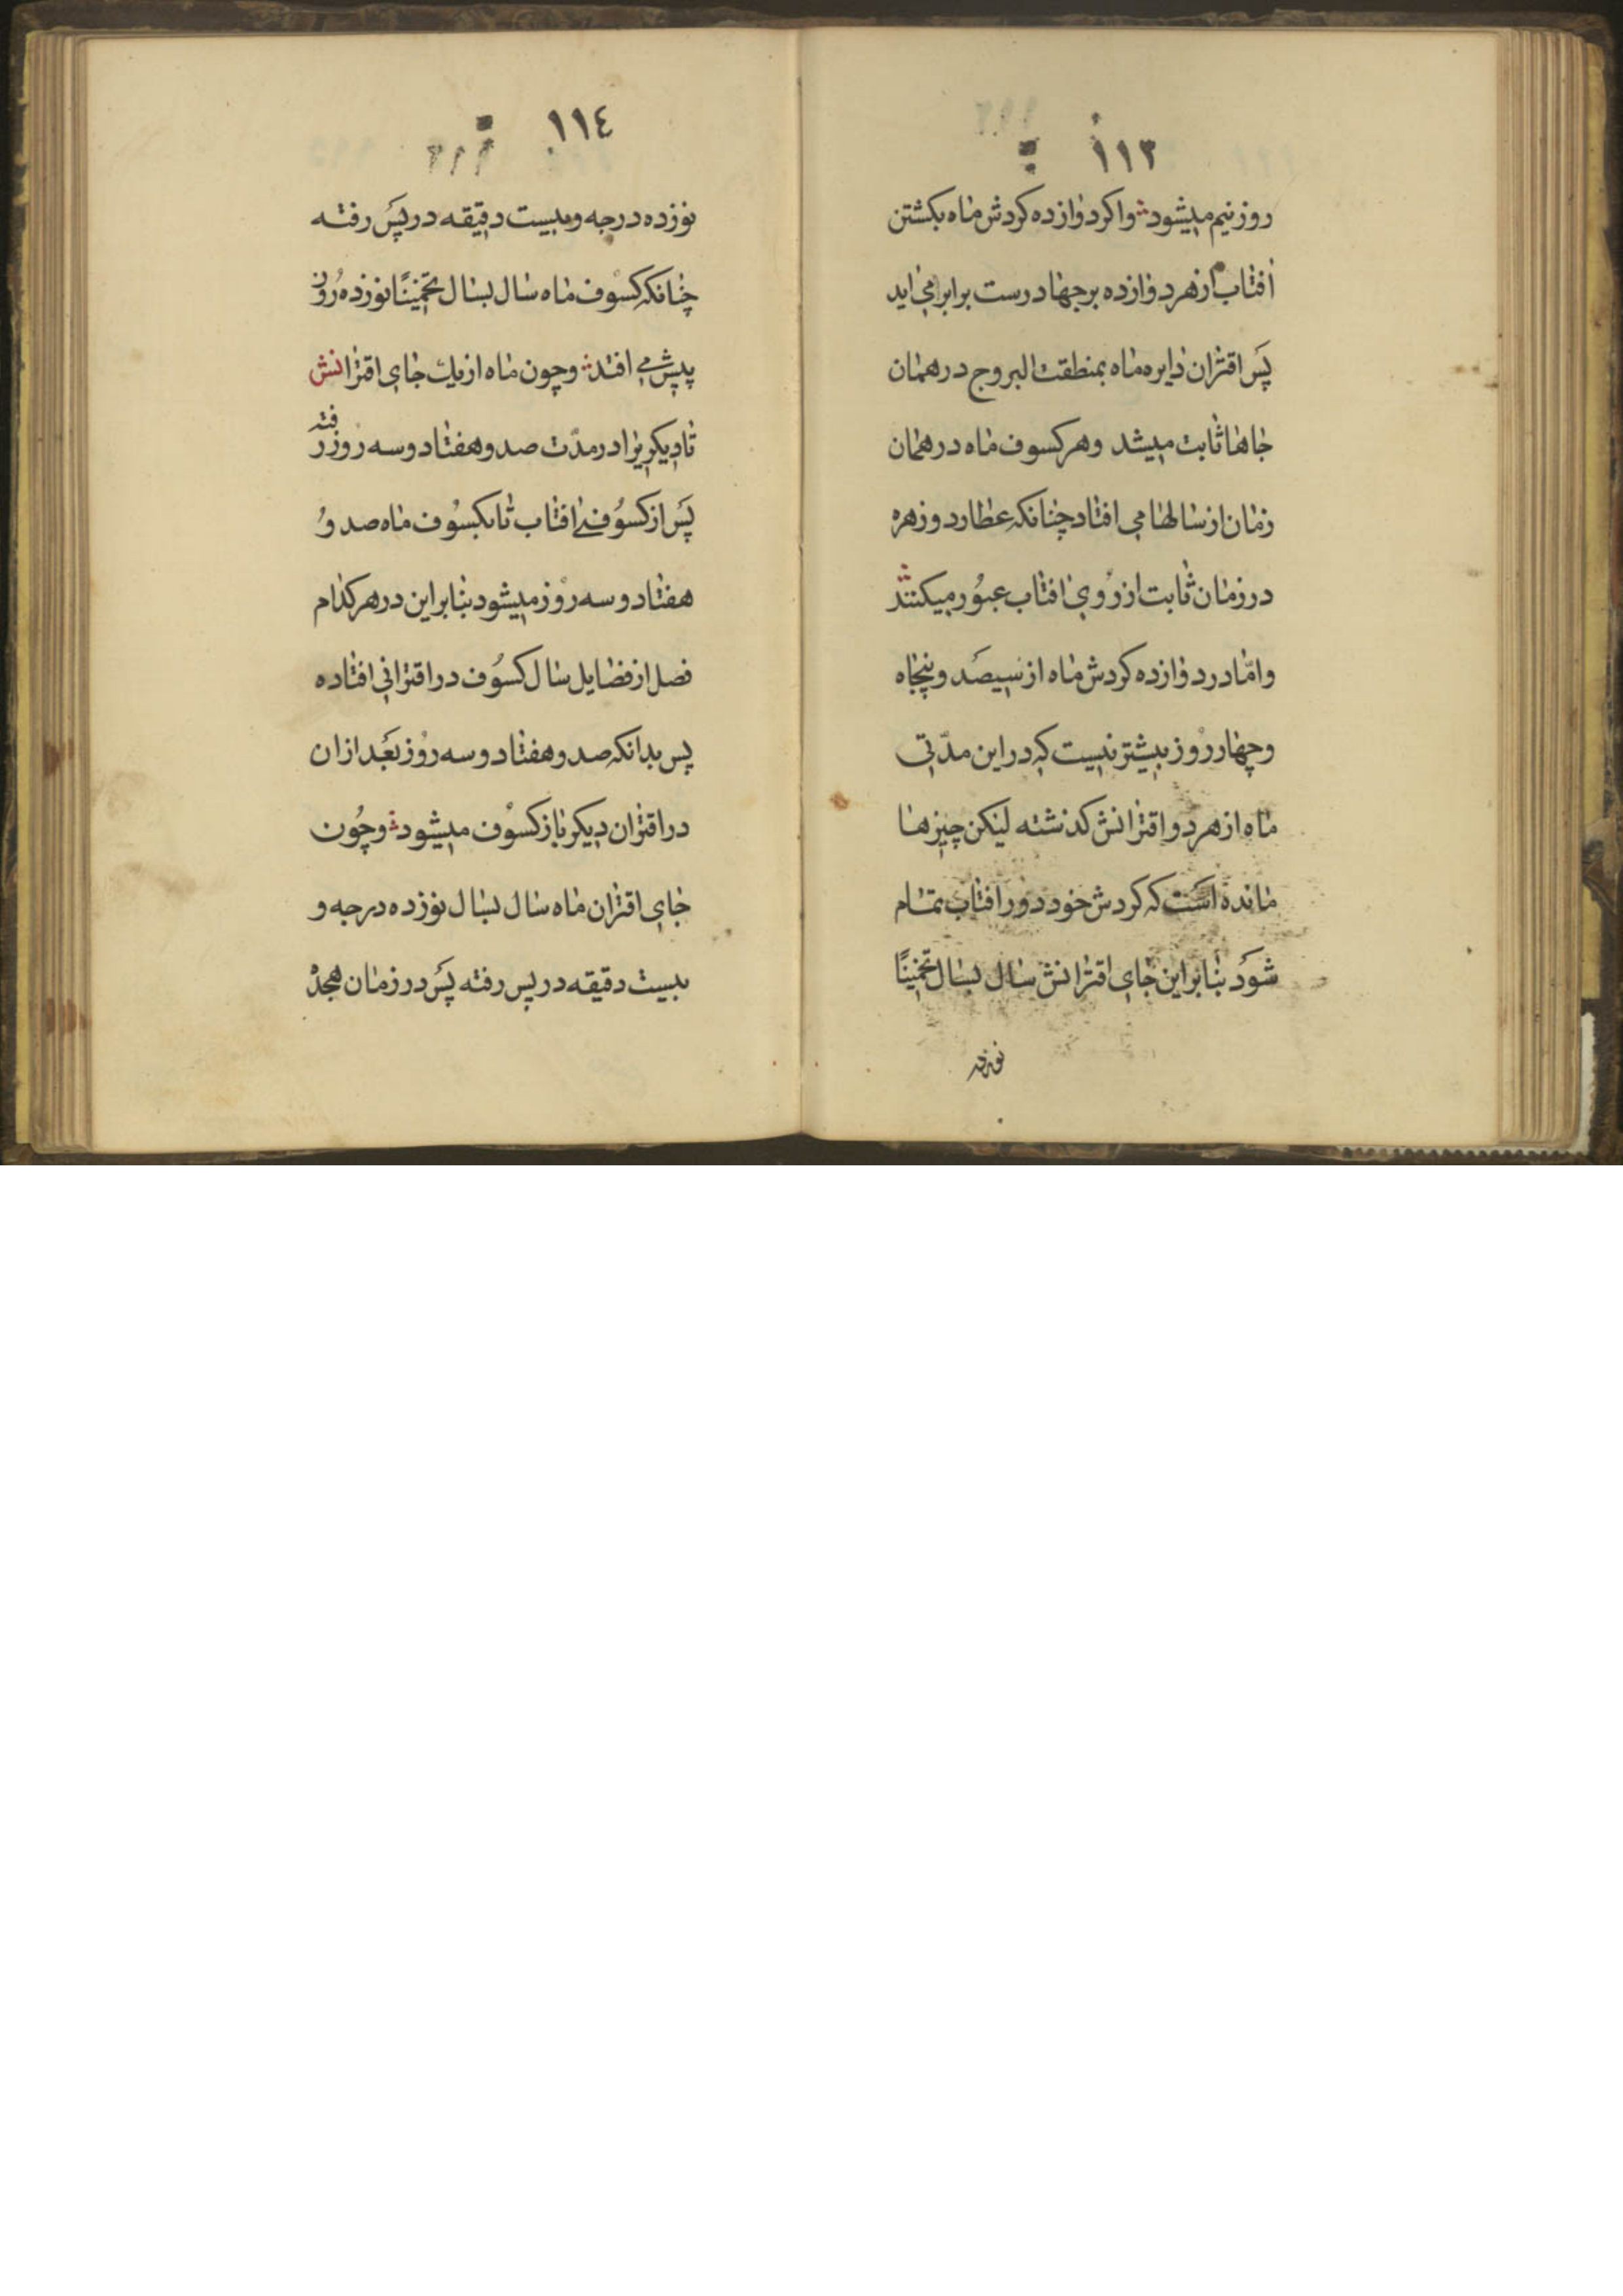 ۱۱۳
روز نیم میشود واکر دوازده کردش ماه بکشتن
افتاب از هر دوازده برجها درست برابر می اید
پس اقتران دایره ماه بمنطقت البروج در همان
جاها ثابت میشد وهر کسوف ماه در همان
زمان از سالها می افتاد چنانکه عطارد و زهره
در زمان ثابت از روی افتاب عبور میکنند
وامّا در دوازده کردش ماه از سیصد و پنجاه
وچهار روز بیشتر نیست که در این مدّتی
ماه از هر دو اقترانش کذشته لیکن چیزها
مانده است که کردش خود دور افتاب تمام
شود بنابراین جای اقترانش سال بسال تخمینًا
نوزده
۱۱٤
نوزده درجه وبیست دقیقه در پس رفته
چنانکه کسوف ماه سال بسال تخمینًا نوزده روز
پیش می افتد وچون ماه از یك جای اقترانش
تا دیکریرا در مدّت صد وهفتاد وسه روز رفته
پس از کسوفی افتاب تا بکسوف ماه صد و
هفتاد وسه روز میشود بنابراین در هر کدام
فصل از فضایل سال کسوف در اقترانی افتاده
پس بدانکه صد وهفتاد وسه روز بعد ازان
در اقتران دیکر باز کسوف میشود وچون
جای اقتران ماه سال بسال نوزده درجه و
بیست دقیقه در پس رفته پس در زمان هجده